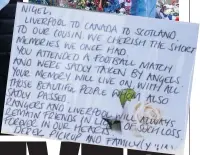 NIGEL,
LIVERPOOL TO CANADA TO SCOTLAND
TO OUR COUSIN WE CHERISH THE SHORT
MEMORIES WE ONCE HAD
YOU ATTENDED A FOOTBALL MATCH
AND WERE SADLY TAKEN BY ANGELS
YOUR MEMORY WILL LIVE ON WITH ALL
THOSE BEAUTIFUL PEOPLE ALSO
SADLY PASSED
RANGERS AND LIVERPOOL WILL ALWAYS
REMAIN FRIENDS IN OF SUCH LOSS
FOREVER IN OUR HEARTS
DEREK, AND FAMILY